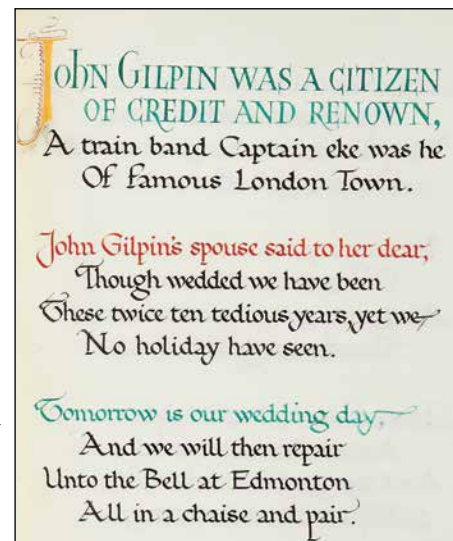 JOHN GILPIN WAS A CITIZEN
OF CREDIT AND RENOWN,
A train band Captain eke was he
Of famous London Town.
John Gilpin's spouse said to her dear,
Though wedded we have been
These twice ten tedious years, yet we
No holiday have seen.
Tomorrow is our wedding day,
And we will then repair
Unto the Bell at Edmonton
All in a chaise and pair.